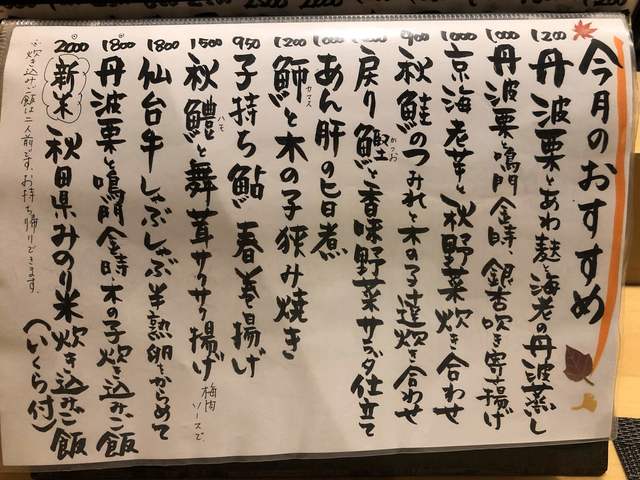 今月のおすすめ
1200 丹波栗とあわ麩と海老の丹波蒸し
1000 丹波栗と鳴門金時、銀杏吹き寄せ揚げ
1000 京海老芋と秋野菜炊き合わせ
900 秋鮭のつみれと木の子達炊き合わせ
戻り鰹と香味野菜サラダ仕立て
かつお
1000 あん肝の旨煮
1200 魳と木の子挟み焼き
カマス
950 子持ち鮎春巻揚げ
1500 秋鱧と舞茸サクサク揚げ 梅肉ソースで
ハモ
1800 仙台牛しゃぶしゃぶ半熟卵をからめて
1800 丹波栗と鳴門金時木の子炊き込みご飯
2000 新米 秋田県みのり米炊き込みご飯
(いくら付)
炊き込みご飯は二人前です。お持ち帰りできます。